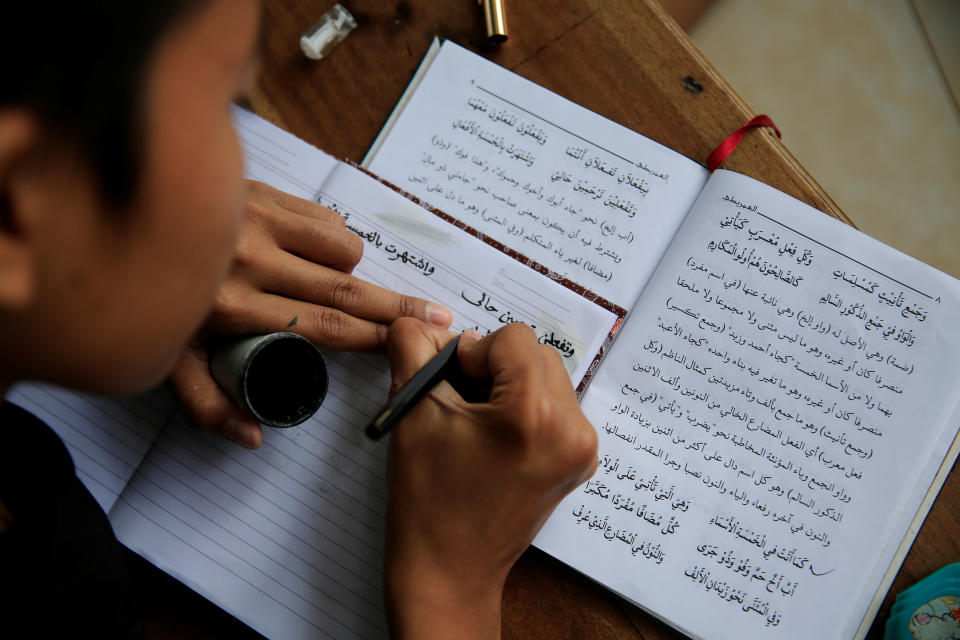 العمريطي ٩
وَيَفْعَلَانِ تَفْعَلَانِ أَنْتُمَا وَيَفْعَلُونَ تَفْعَلُونَ مَعْهُمَا
وَتَفْعَلِينَ تَرْحَمِينَ حَالِي وَاشْتَهَرَتْ بِالْخَمْسَةِ الْأَفْعَالِ
(أب إلخ) نحو "جاء أبوك وأخوك وحموك"، و"هذا فوك" (وذو)
ويشترط فيه أن يكون بمعنى صاحب نحو "جاءني ذو مال"
(مضافا) لغير ياء المتكلم (وفي المثنى) وهو ما دل على اثنين
العمريطي ٨
وَجَمْعِ تَأْنِيثٍ كَمُسْلِمَاتِ وَكُلِّ فِعْلٍ مُعْرَبٍ كَيَأْتِي
وَالْوَاوُ فِي جَمْعِ الذُّكُورِ السَّالِمِ كَالصَّالِحُونَ هُمْ أُولُو الْمَكَارِمِ
(ضمة) وهي الأصل له (واو إلخ) وهي نائبة عنها (في اسم مفرد)
منصرفا كان أو غيره، وهو ما ليس مثنى ولا مجموعا ولا ملحقا
بهما ولا من الأسما الخمسة "كجاء أحمد وزيد" (وجمع تكسير)
منصرفا كان أو غيره، وهو ما تغير فيه بناء واحده "كجاء الأعبد"
(وجمع تأنيث) وهو ما جمع بألف وتاء مزيدتين كمثال الناظم (وكل
فعل معرب) أي الفعل المضارع الخالي من النونين وألف الاثنين
وواو الجمع وياء المؤنثة المخاطبة نحو "يضرب" و"يأتي" (في جمع
الذكور السالم) وهو كل اسم دال على أكثر من اثنين بزيادة الواو
والنون في آخره رفعا، والياء والنون نصبا وجرا المقدر انفصالها.
كَمَا أَتَتْ فِي الْخَمْسَةِ الْأَسْمَاءِ وَهِيَ الَّتِي تَأْتِي عَلَى الْوِلَاءِ
أَبٌ أَخٌ حَمٌ وَفُو وَذُو جَرَى كُلٌّ مُضَافًا مُفْرَدًا مُكَبَّرًا
وَفِي الْمُثَنَّى نَحْوُ زَيْدَانِ الْأَلِفْ وَالنُّونُ فِي الْمُضَارِعِ الَّذِي عُرِفْ
وتفعلين ترحمين حالي
واشتهرت بالخمسة